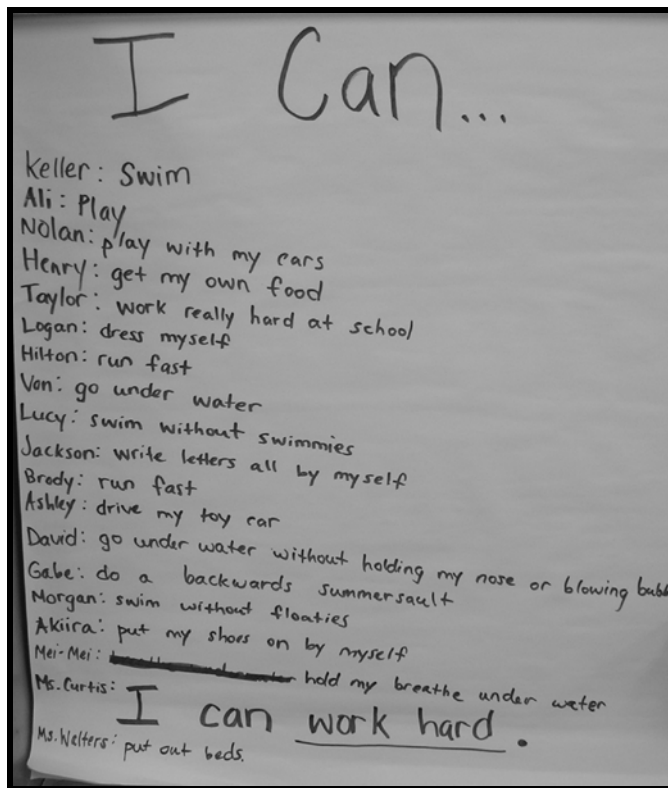 I Can...
Keller: Swim
Ali: Play
Nolan: play with my cars
Henry: get my own food
Taylor: work really hard at school
Logan: dress myself
Hilton: run fast
Von: go under water
Lucy: swim without swimmies
Jackson: write letters all by myself
Brody: run fast
Ashley: drive my toy car
David: go under water without holding my nose or blowing bubb
Gabe: do a backwards summersault
Morgan: swim without floaties
Akiira: put my shoes on by myself
Mei-Mei: hold my breathe under water
Ms. Curtis: I can work hard.
Ms. Welters: put out beds.